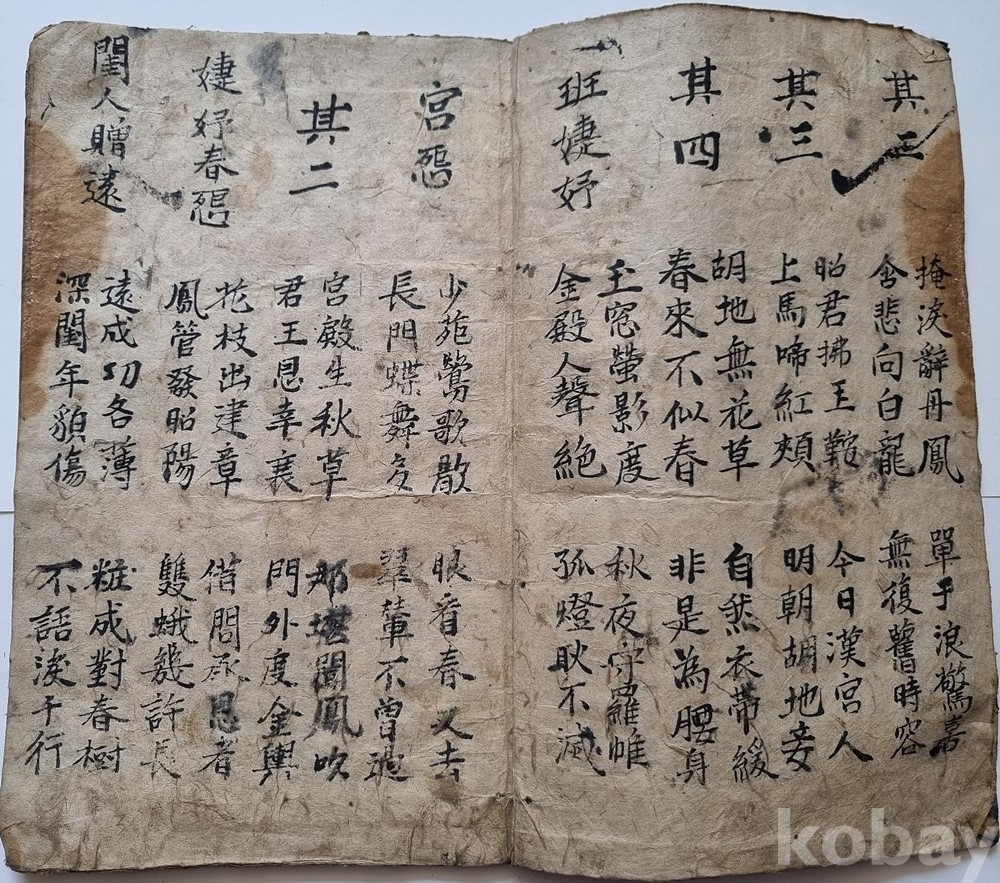 其三
掩淚辭丹鳳
含悲向白龍
單于浪驚喜
無復舊時容
其三
昭君拂王鞍
上馬啼紅頰
今日漢宮人
明朝胡地妾
其四
胡地無花草
春來不似春
自然衣帶緩
非是為腰身
班婕妤
玉窓螢影度
金殿人聲絕
秋夜守羅帷
孤燈耿不滅
宮怨
少苑鶯歌歇
長門蝶舞多
眼看春又去
翠輦不曾過
其二
宮殿生秋草
君王恩幸衰
那堪聞鳳吹
門外度金輿
婕妤春怨
花枝出建章
鳳管發昭陽
借問承恩者
雙蛾幾許長
閨人贈遠
遠戍功各薄
深閨年貌傷
粧成對春樹
不語淚千行
kobay